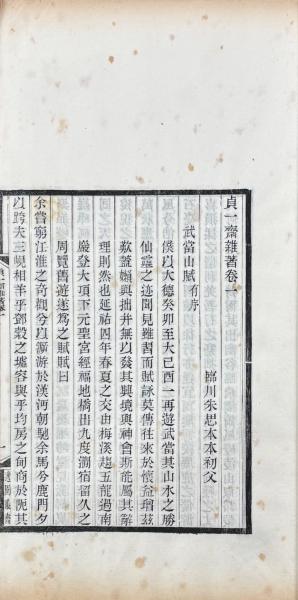 貞一齋雜著卷一
臨川朱思本本初父
武當山賦有序
僕以大德癸卯至大己酉一再遊武當其山水之勝
仙靈之迹聞見雖習而賦詠莫傳往來於懷益增茲
歎蓋嬾與拙并無以發其興境與神會斯能屬其辭
理則然也延祐四年春夏之交由梅溪趨五龍過南
巖登大頂下元聖宮經福地橋由九度澗宿留久之
周覽舊遊遂爲之賦賦曰
余嘗窮江淮之奇觀兮以瀕游於漢河朝馳余馬兮鹿門夕
以跨夫三峴相羊乎鄧穀之墟容與乎均房之甸商於阨其